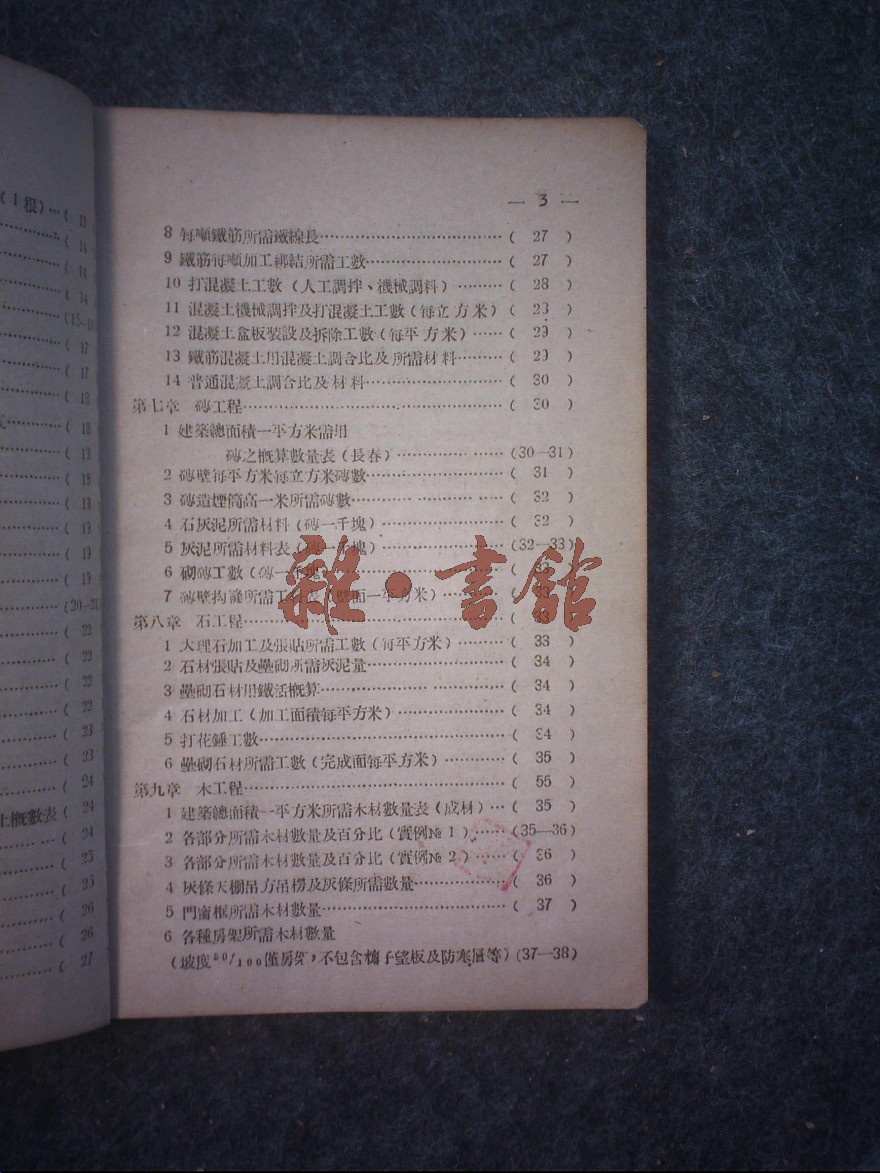 — 3 —
8 每噸鐵筋所需鐵線長……( 27 )
9 鐵筋每噸加工綁結所需工數……( 27 )
10 打混凝土工數（人工調拌、機械調料）……( 28 )
11 混凝土機械調拌及打混凝土工數（每立方米）( 23 )
12 混凝土盒板裝設及拆除工數（每平方米）……( 29 )
13 鐵筋混凝土用混凝土調合比及所需材料……( 29 )
14 普通混凝土調合比及材料……( 30 )
第七章 磚工程……( 30 )
1 建築總面積一平方米需用
磚之概算數量表（長春）……(30—31)
2 磚壁每平方米每立方米磚數……( 31 )
3 磚造煙筒高一米所需磚數……( 32 )
4 石灰泥所需材料（磚一千塊）……( 32 )
5 灰泥所需材料表（磚一千塊）……(32—33)
6 砌磚工數（磚一千塊）……
7 磚壁拘縫所需工料表（壁面一平方米）……( 33 )
第八章 石工程……( 33 )
1 大理石加工及張貼所需工數（每平方米）……( 33 )
2 石材張貼及壘砌所需灰泥量……( 34 )
3 壘砌石材用鐵活概算……( 34 )
4 石材加工（加工面積每平方米）……( 34 )
5 打花錘工數……( 34 )
6 壘砌石材所需工數（完成面每平方米）……( 35 )
第九章 木工程……( 55 )
1 建築總面積一平方米所需木材數量表（成材）…( 35 )
2 各部分所需木材數量及百分比（實例№1）……(35—36)
3 各部分所需木材數量及百分比（實例№2）……( 36 )
4 灰條天棚吊方吊楞及灰條所需數量……( 36 )
5 門窗框所需木材數量……( 37 )
6 各種房架所需木材數量
（坡度50/100僅房架，不包含檩子望板及防寒層等）(37—38)
雜·書館
（1根）…( 13
( 14
( 14
( 14
(15—16
( 17
( 17
( 18
( 18
( 18
( 19
( 19
( 19
( 19
(20—21
( 22
( 22
( 22
( 22
( 23
( 23
( 24
土概數表( 24
( 24
( 25
( 25
( 26
( 26
( 27